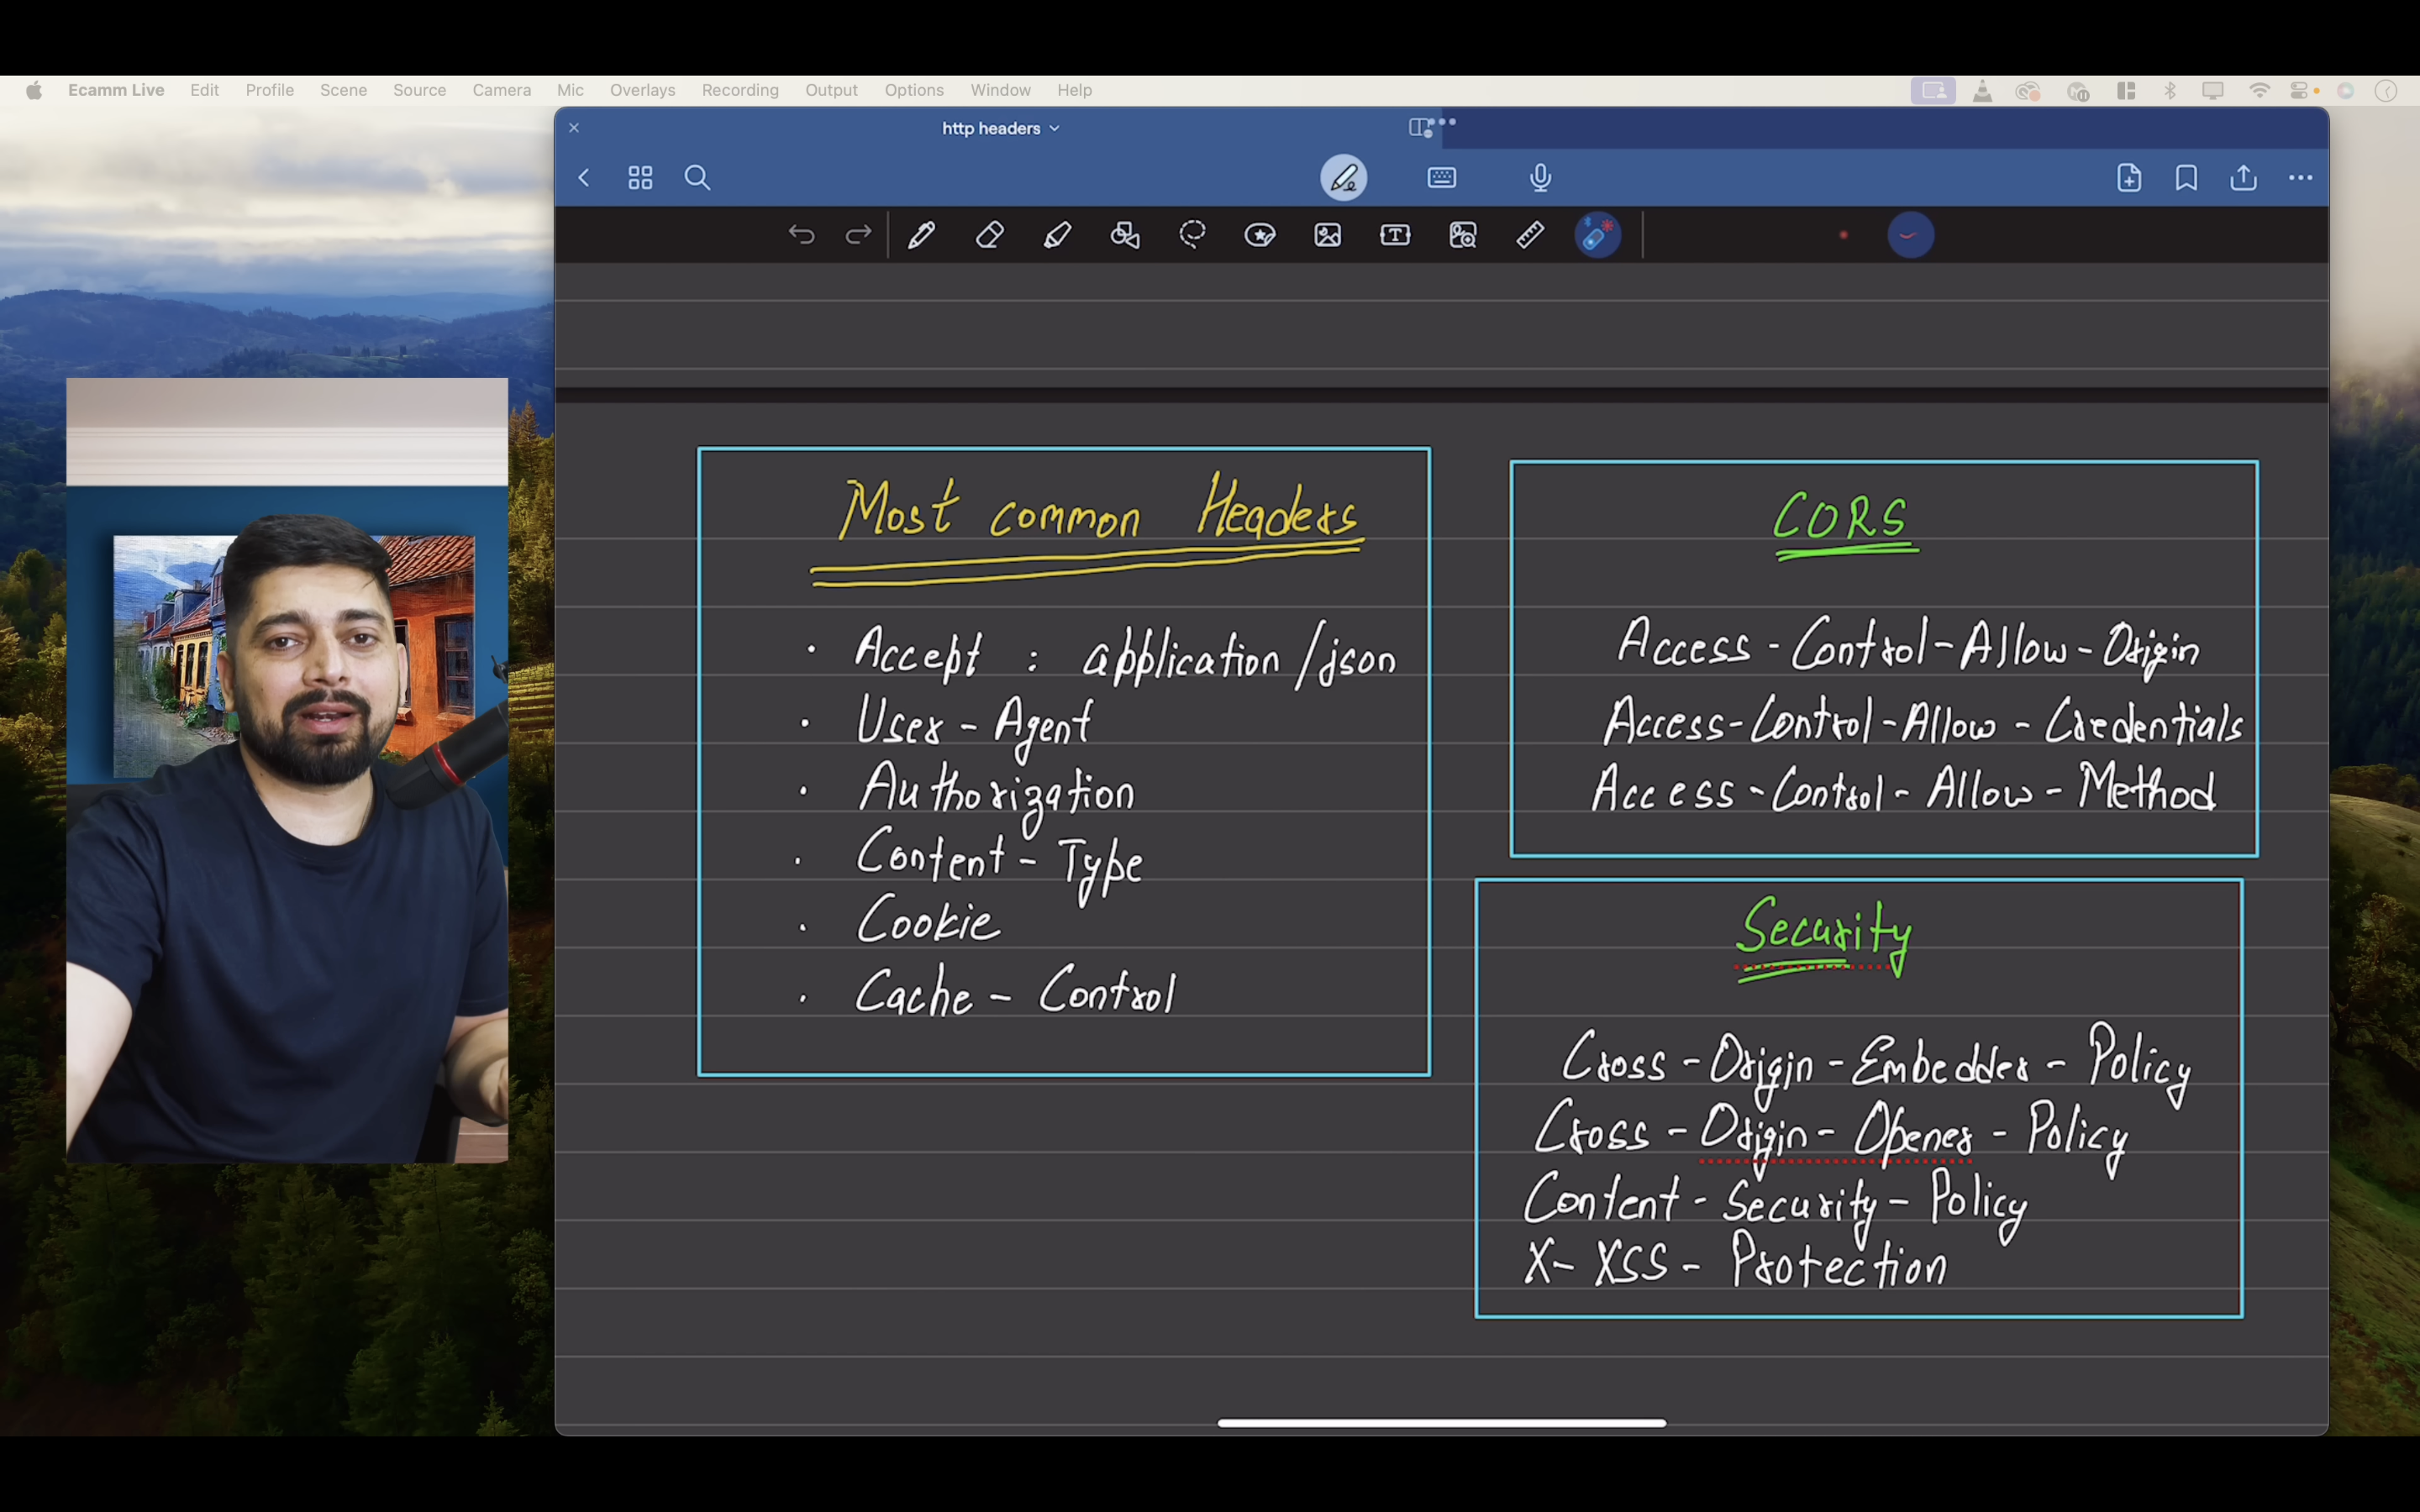 Ecamm Live Edit Profile Scene Source Camera Mic Overlays Recording Output Options Window Help
http headers
Most common Headers
· Accept : application/json
· User - Agent
· Authorization
· Content - Type
· Cookie
· Cache - Control
CORS
Access - Control - Allow - Origin
Access - Control - Allow - Credentials
Access - Control - Allow - Method
Security
Cross - Origin - Embedder - Policy
Cross - Origin - Opener - Policy
Content - Security - Policy
X - XSS - Protection